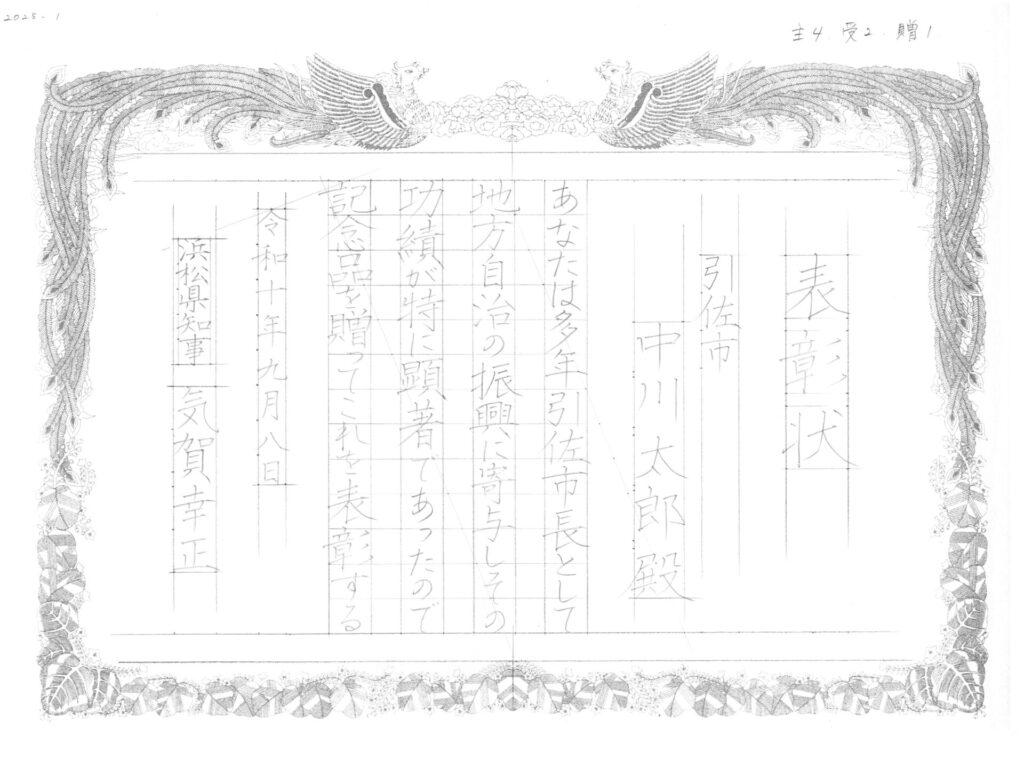 2025.1
主4.受2.贈1
表彰状
引佐市
中川太郎殿
あなたは多年引佐市長として
地方自治の振興に寄与しその
功績が特に顕著であったので
記念品を贈ってこれを表彰する
令和十年九月八日
浜松県知事 気賀幸正